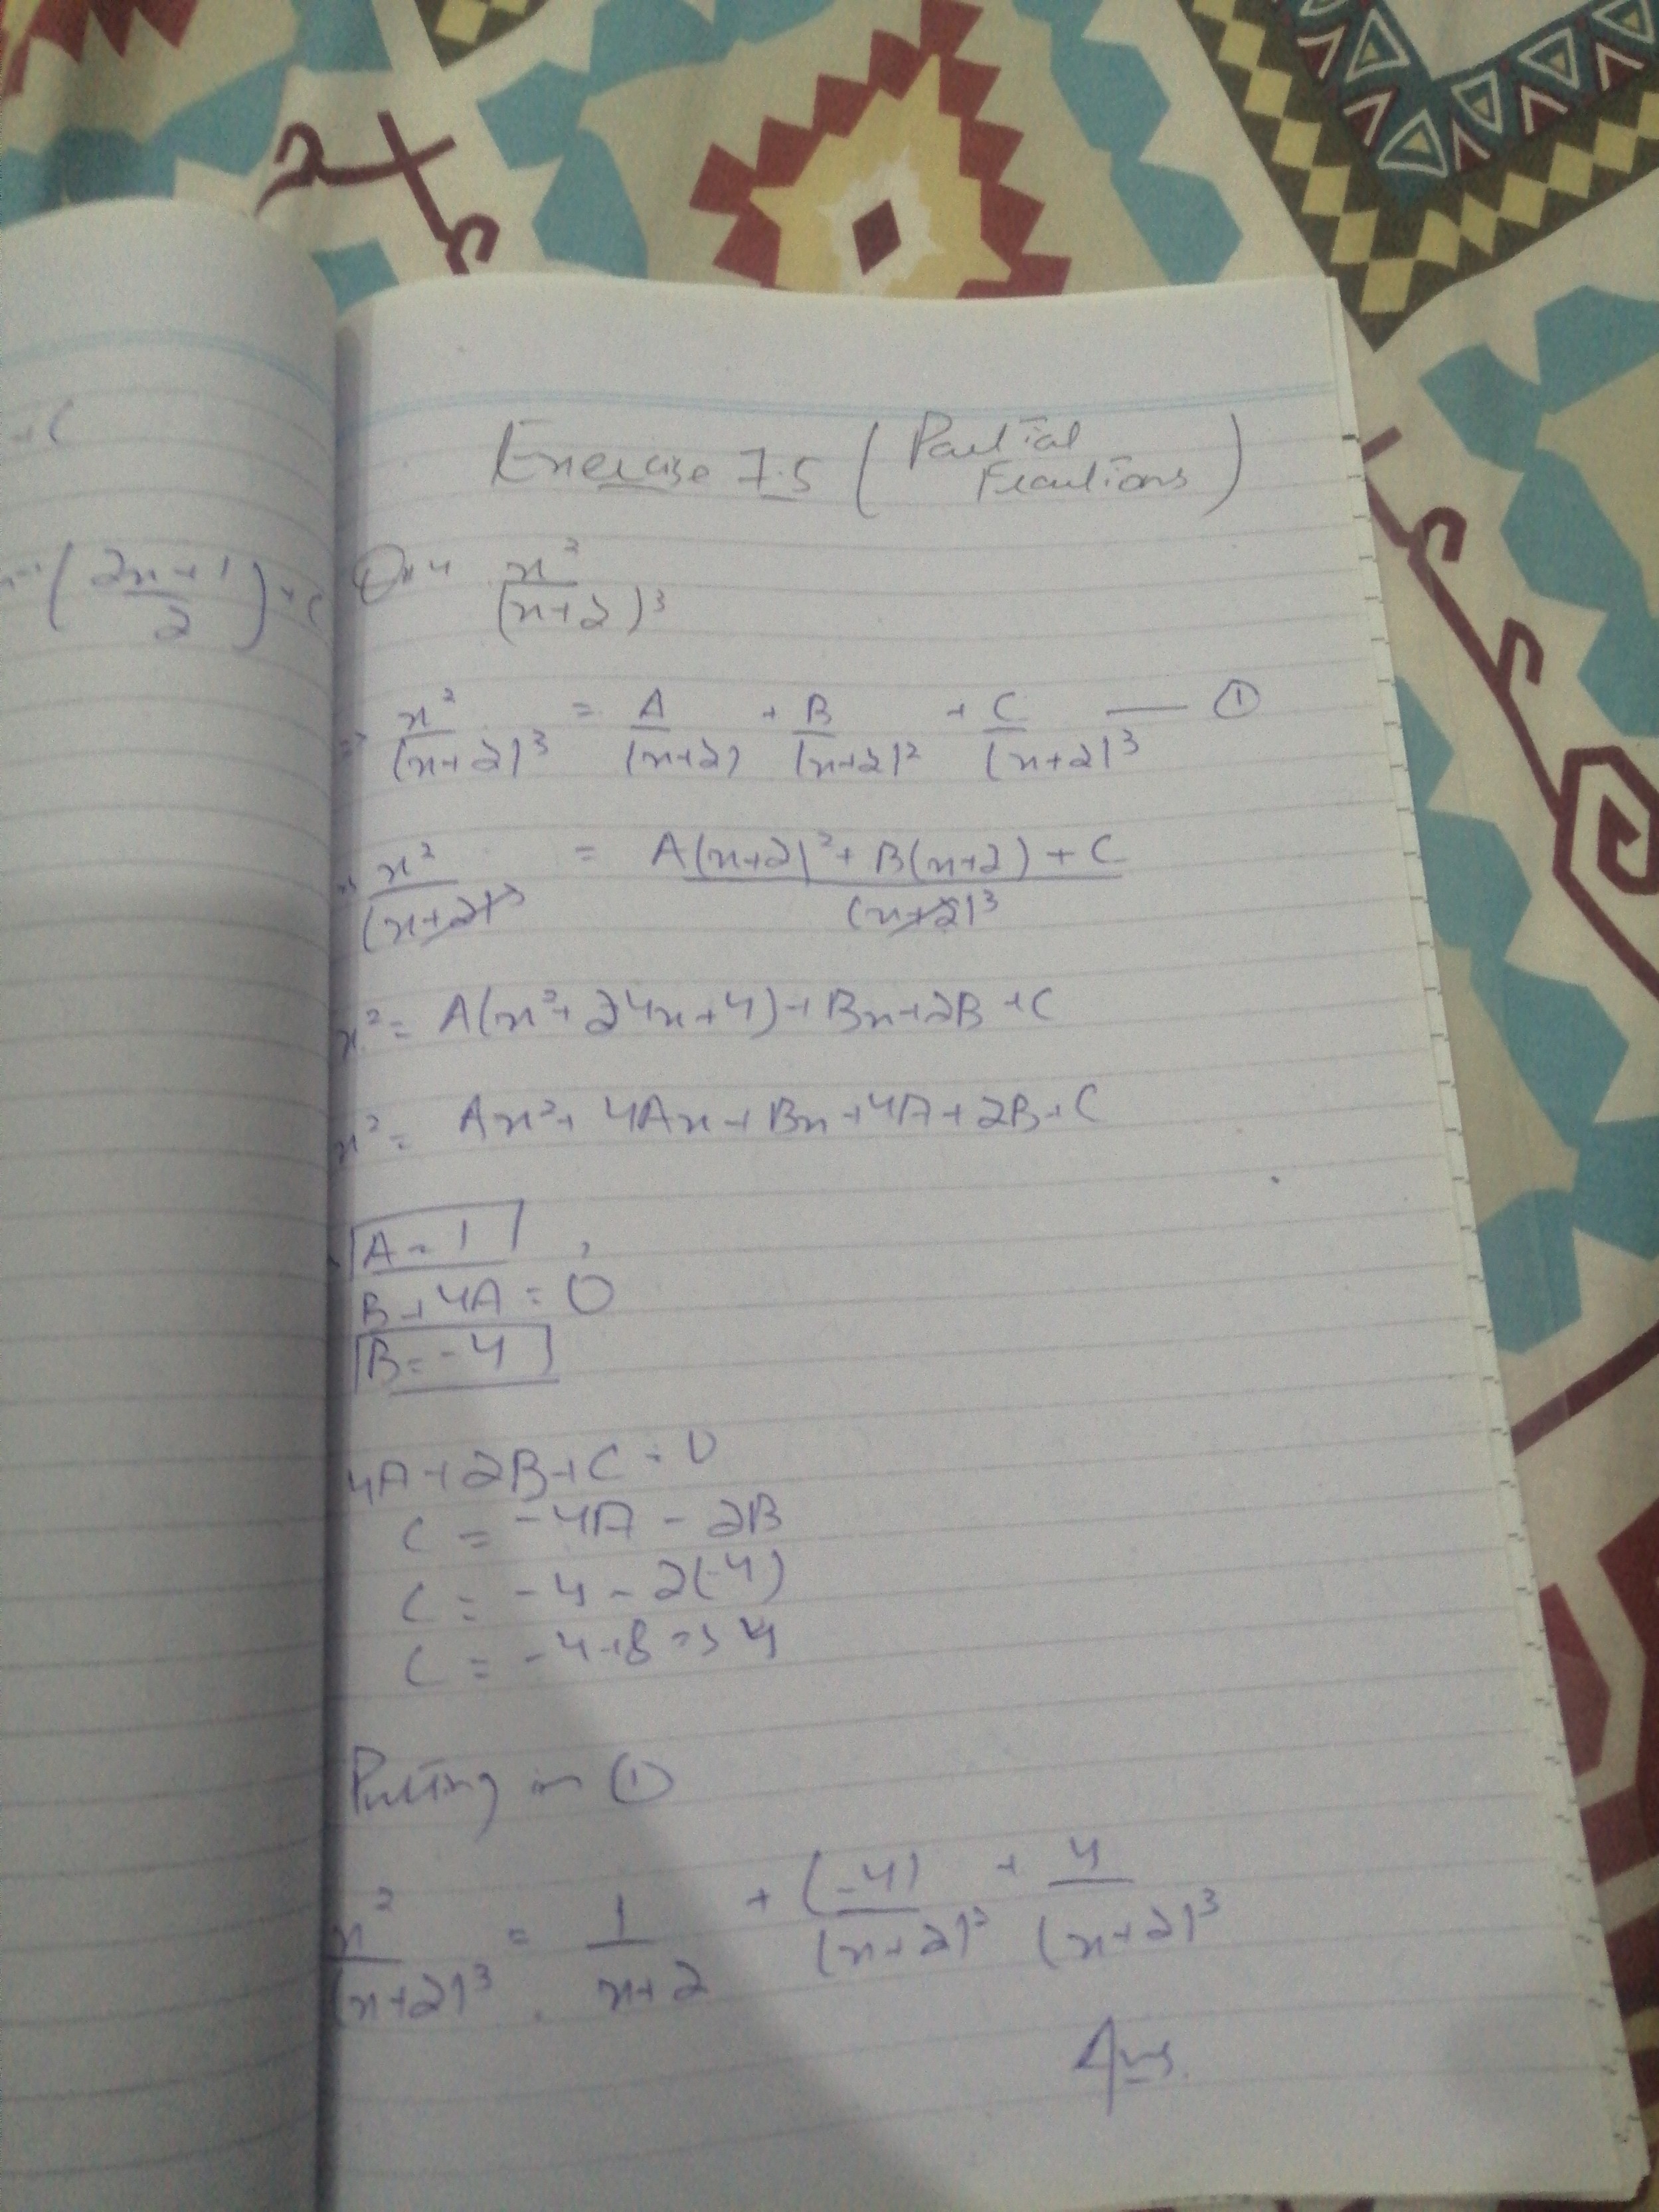 +C
(2x+1/2) + C
Exercise 7.5 (Partial Fractions)
Qn 4 x²/(x+2)³
=> x²/(x+2)³ = A/(x+2) + B/(x+2)² + C/(x+2)³ — ①
=> x²/(x+2)³ = A(x+2)² + B(x+2) + C/(x+2)³
x² = A(x²+24x+4)+Bx+2B+C
x² = Ax²+4Ax+Bx+4A+2B+C
A = 1,
B+4A = 0
B = -4
4A+2B+C = 0
C = -4A - 2B
C = -4 - 2(-4)
C = -4+8 => 4
Putting in ①
x²/(x+2)³ = 1/x+2 + (-4)/(x+2)² + 4/(x+2)³
Ans.